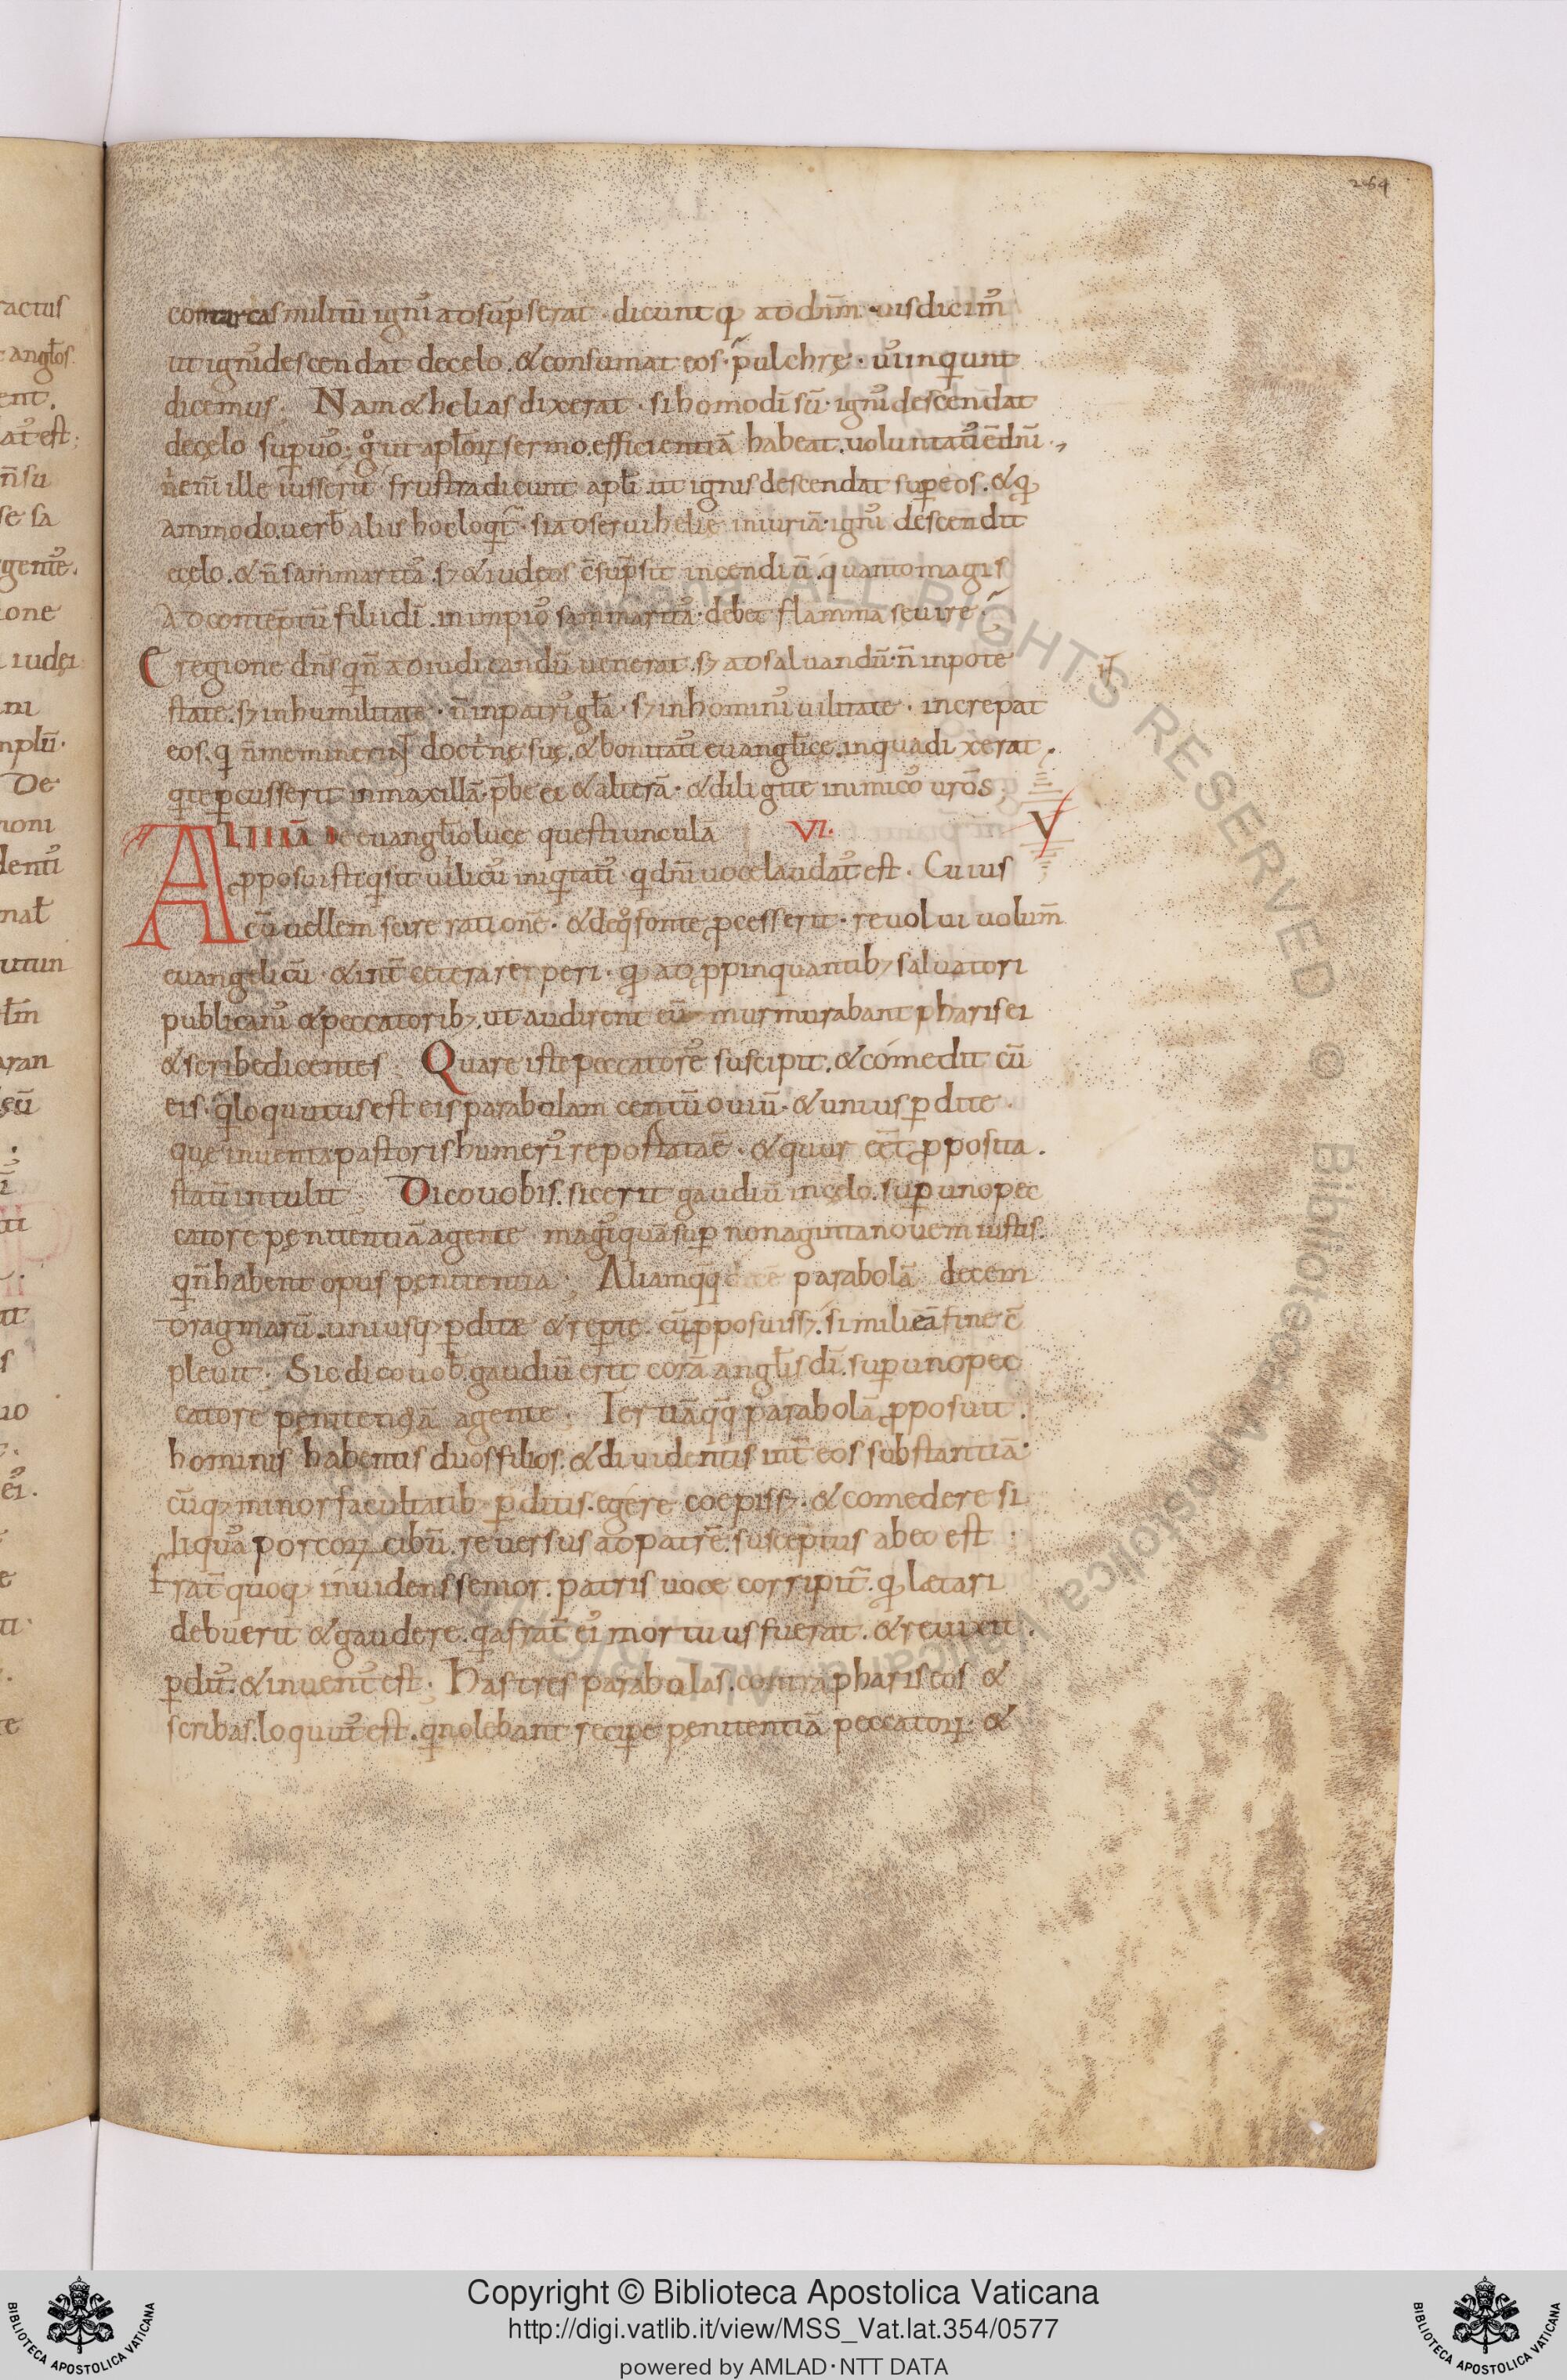 264
comarcas militū ignis adsūpserat · dicuntq; addnm · uis dicim᾽
ut ignis descendat decelo . & consumat eos · pulchre · uis inqiunt
dicemus · Nam & helias dixerat · si homo dī sū · ignis descendat
decęlo sup uos · g° ut aplorꝝ sermo . efficientiā habeat . uoluntatis ē dnī ·
nenī ille iusserit frustra dicunt apłi . ut ignis descendat sup eos . & qđ
ammodo uerb alius hoc loqt̄ · si ad serui helie iniuriā · ignis descendit
ecelo . & ñ sammaritā sȝ & iudeos c̄sūpsit incendiū . quanto magis
Ad conteptū filii dī . in impios sammaritas debet flamma seuire ·
E regione dn̄s qi ñ ad iudicandū uenerat . sȝ ad saluandū · ñ in pote
state . sȝ in humilitate · ñ in patris gła · sȝ in hominis uilitate · increpat
eos . qđ ñ meminerint doctrine suę . & bonitatis euanglice . in qua dixerat ·
qi te pcusserit in maxillā · pbe ei & alterā · & diligite inimicos uros ·
ALITĀ De euanglio luce questiunculā VI. V
pposuisti qi sit uilicus iniqitatis · qi dnī uoce laudat᾽ est · Cuius
cū uellem scire rationē · & deqo fonte pcesserit · reuolui uolum̄
euangelicū · & int̄ cetera repperi · qđ adppinquantibȝ saluatori
publicanis & peccatoribȝ . ut audirent eū murmurabant pharisei
& scribe dicentes · Quare iste peccatores suscipit . & comedit cū
eis · qi loquutus est eis parabolam centū ouiū · & unius pdite ·
quę inuenta pastoris humeris repostata ē · & quur eēt pposita .
statī intulit · Dico uobis . sic erit gaudiū in cęlo . sup uno pec
catore pęnitentiā agente magis quā sup nonaginta nouem iustis .
qi ñ habent opus pęnitentia ; Aliam qq parabolā decem
dragmarū . uniusq; pdite & reperte . cū pposuissȝ . simili eā fine c̄
pleuit ; Sic dico uob̄ . gaudiū erit corā anglis dī . sup uno pec
catore pęnitentiā agente ; Tertiā qq parabolā pposuit .
hominis habentis duos filios . & diuidentis int̄ eos substantiā ·
cūq; minor facultatibȝ pditis . egere coepissȝ . & comedere si
liquas porcorꝝ cibū . reuersus ad patrē . susceptus ab eo est ·
frat̄ quoq; inuidens senior . patris uoce corripit̄ . qđ lætari
debuerit & gaudere . qa frat̄ eī mortuus fuerat . & reuixit .
pdit᾽ . & inuent᾽ est ; Has tres parabolas . contra phariseos &
scribas . loquut᾽ est . qi nolebant recipe pęnitentiā peccatorꝝ . &
actus
angłos
ent .
at᾽ est ;
ñ su
se sa
ione
iudęi
De
moni
uo
Copyright © Biblioteca Apostolica Vaticana
http://digi.vatlib.it/view/MSS_Vat.lat.354/0577
powered by AMLAD·NTT DATA
BIBLIOTECA APOSTOLICA VATICANA
BIBLIOTECA APOSTOLICA VATICANA
ALL RIGHTS RESERVED © Biblioteca Apostolica Vaticana